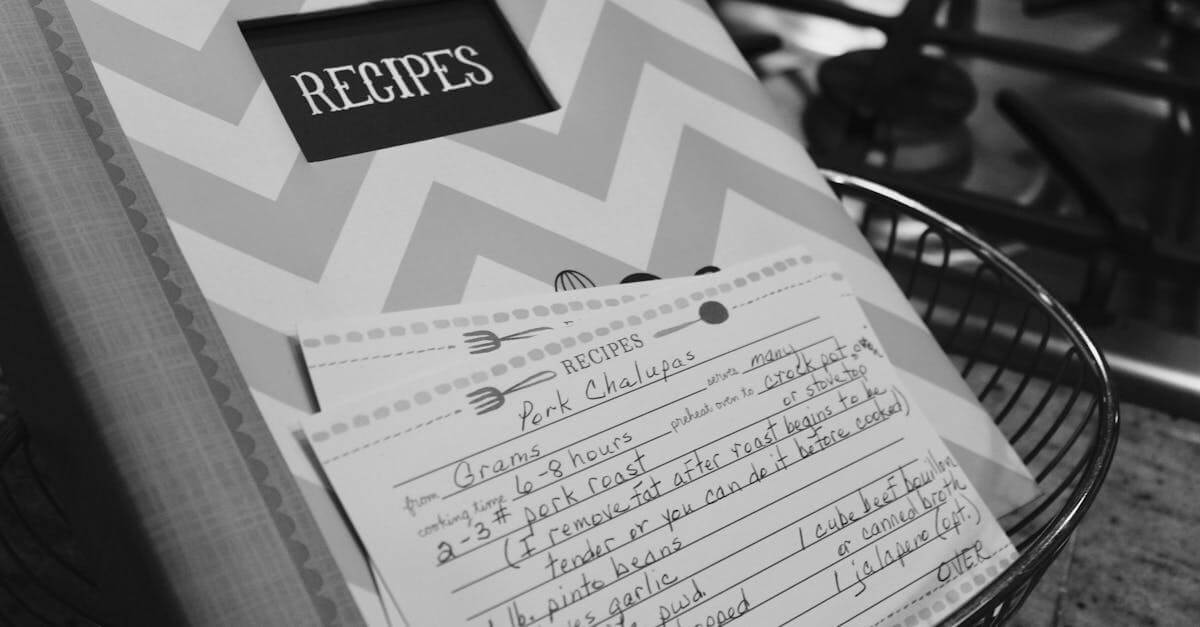 RECIPES
RECIPES
Pork Chalupas
from Grams serves many
cooking time 6-8 hours preheat oven to crock pot, oven
or stove top
2-3# pork roast
(I remove fat after roast begins to be
tender or you can do it before cooked)
1 lb. pinto beans
1 cube beef bouillon
garlic
or canned broth
pwd.
1 jalapeno (opt.)
OVER